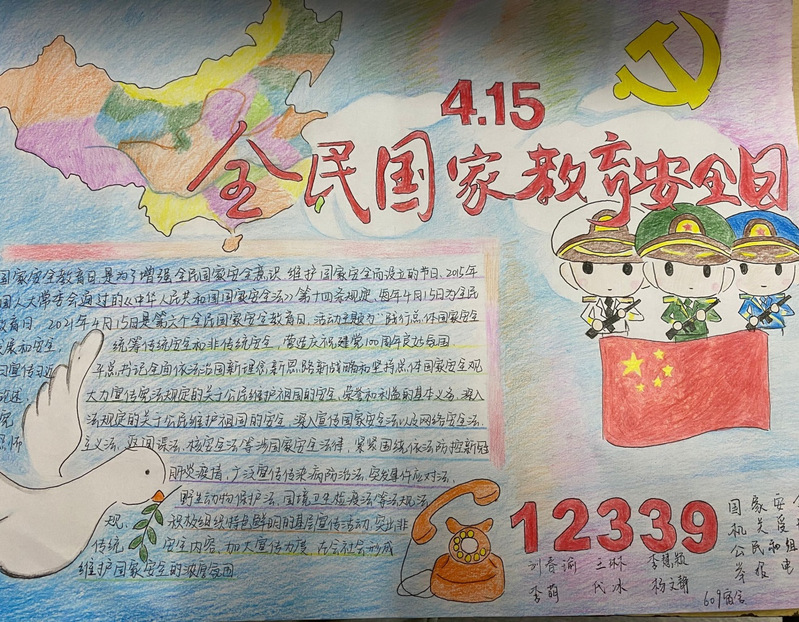 4.15
全民国家教育安全日
国家安全教育日,是为了增强全民国家安全意识,维护国家安全而设立的节日。2015年
国人大常委会通过的《中华人民共和国国家安全法》第十四条规定,每年4月15日为全民
教育日。2021年4月15日是第六个全民国家安全教育日,活动主题为"践行总体国家安全
发展和安全, 统筹传统安全和非传统安全,营造庆祝建党100周年良好氛围
平总书记全面依法治国新理念新思路新战略和坚持总体国家安全观
大力宣传宪法规定的关于公民维护祖国的安全、荣誉和利益的基本义务,深入
法规定的关于公民维护祖国的安全,深入宣传国家安全法以及网络安全法、
主义法、反间谍法、核安全法等涉国家安全法律,紧紧围绕依法防控新冠
肺炎疫情,广泛宣传传染病防治法、突发事件应对法、
野生动物保护法、国境卫生检疫法等法规法
规, 积极组织特色鲜明的基层宣传活动,突出非
传统 安全内容,加大宣传力度,在全社会形成
维护国家安全的浓厚氛围
12339
国家安全
机关受
公民和组
举报电
李萌 代冰 杨文静
609宿舍